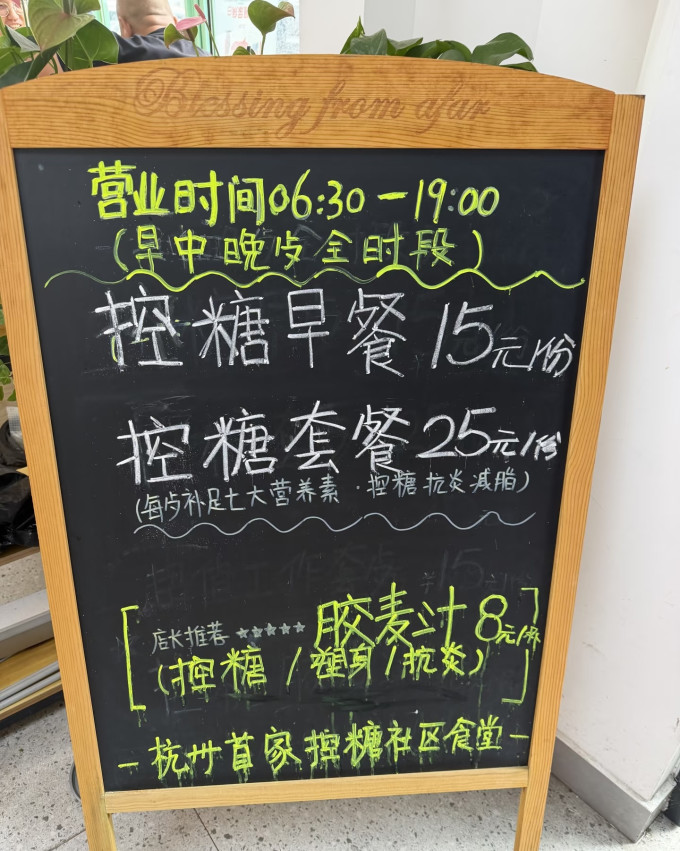 Blessing from afar
营业时间06:30-19:00
(早中晚歺全时段)
控糖早餐 15元/份
控糖套餐 25元/份
(每歺补足七大营养素·控糖抗炎减脂)
店长推荐 ★★★★★ 胶麦汁 8元/杯
(控糖/塑身/抗炎)
-杭州首家控糖社区食堂-